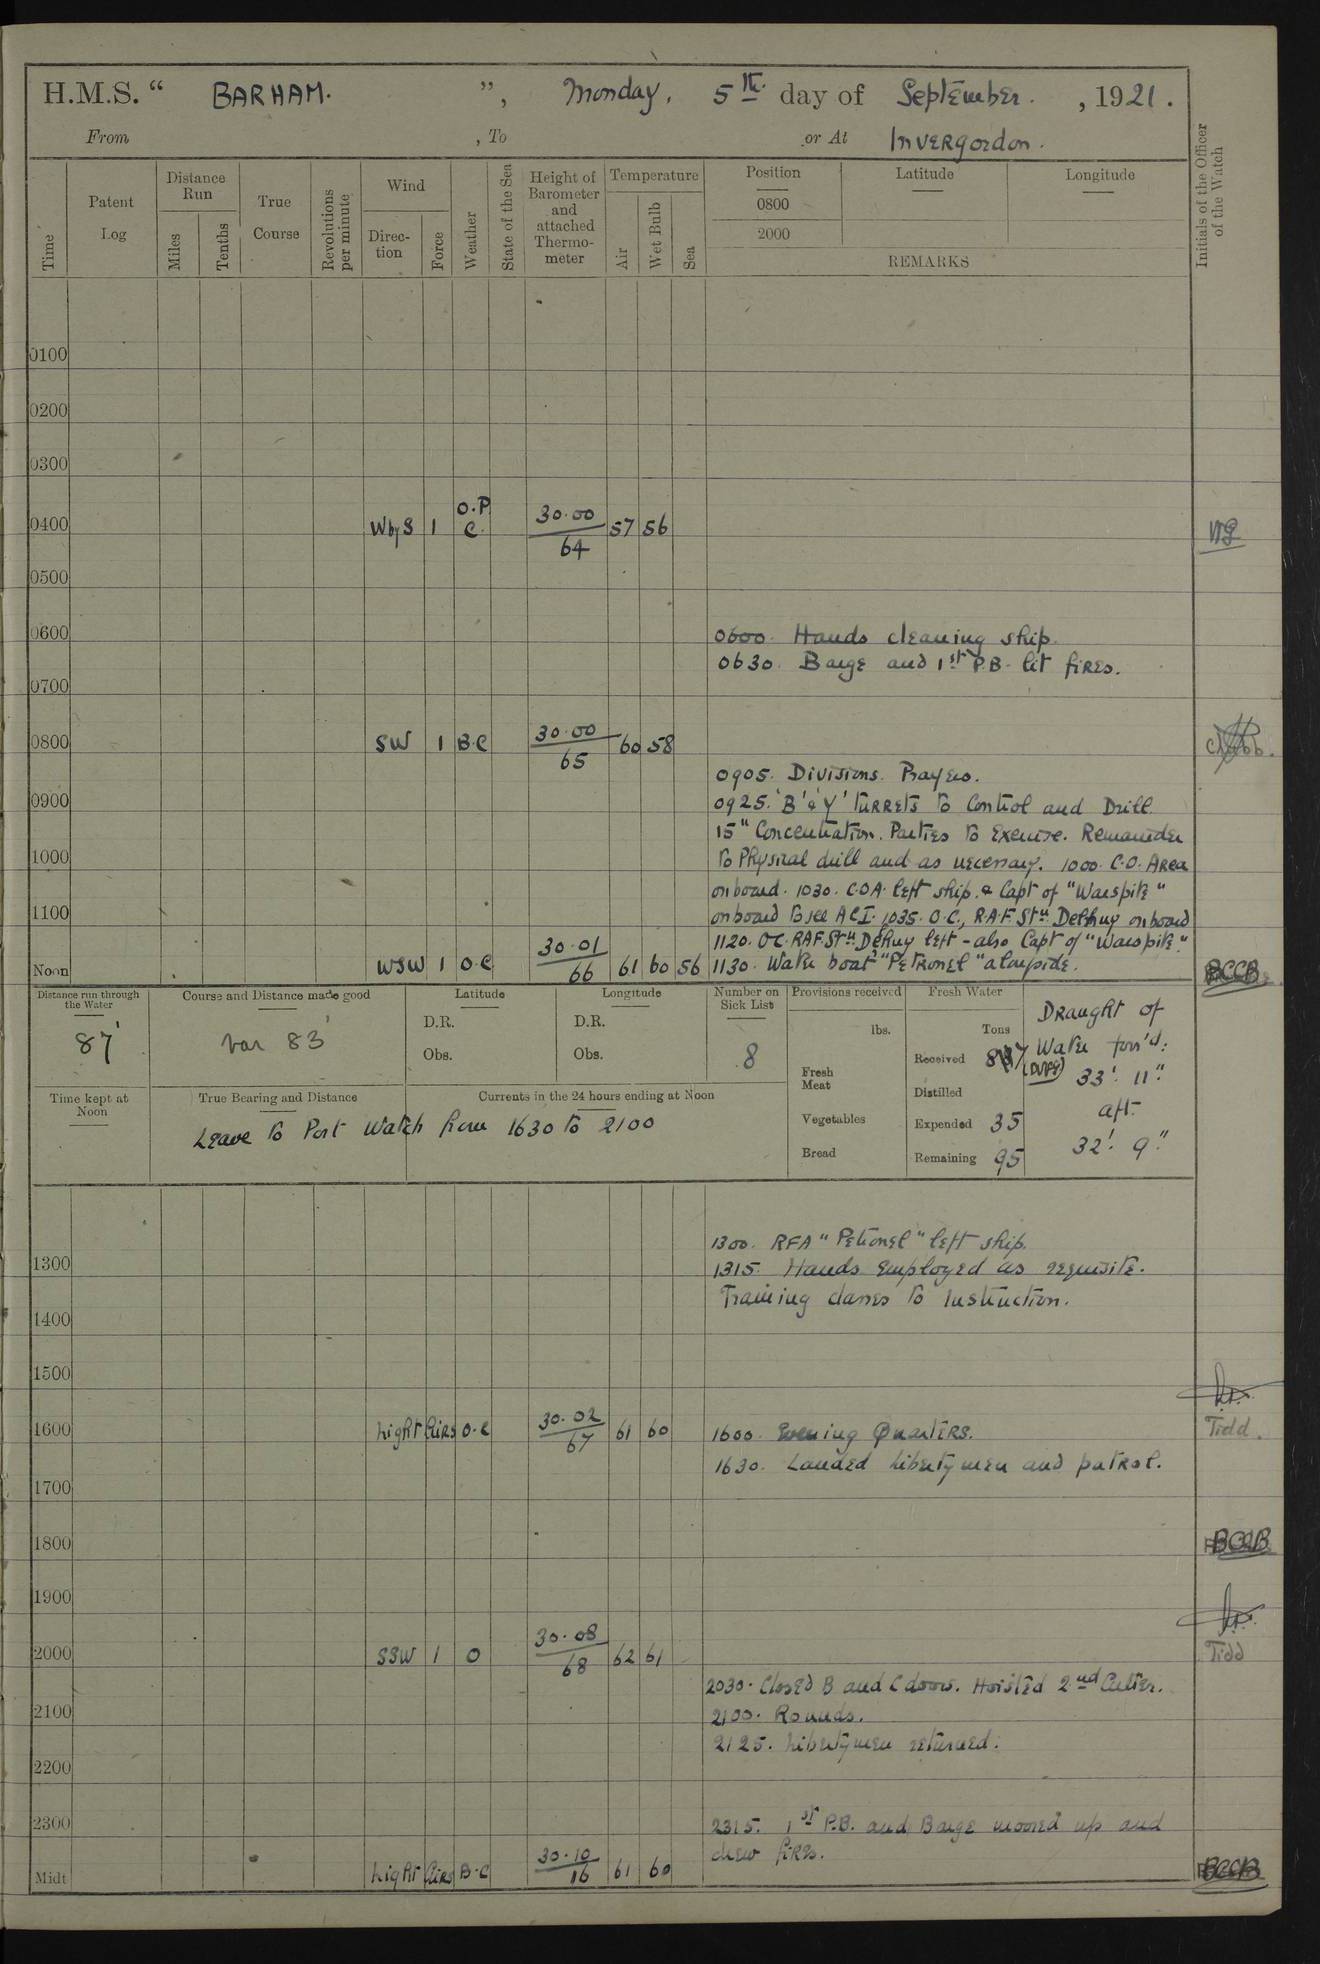 H.M.S. “ BARHAM. ”, Monday, 5th day of September. , 1921.
From , To or At Invergordon.
Time Patent Log Distance Run Miles Tenths True Course Revolutions per minute Wind Direction Force Weather State of the Sea Height of Barometer and attached Thermometer Temperature Air Wet Bulb Sea Position 0800 2000 Latitude Longitude
REMARKS
Initials of the Officer of the Watch
0100
0200
0300
0400 W by S 1 O.P.C. 30.00 64 57 56
0500
0600 0600. Hands cleaning ship.
0630. Barge and 1st P.B. lit fires.
0700
0800 SW 1 B.C 30.00 65 60 58
0905. Divisions. Prayers.
0900 0925. 'B' & 'Y' turrets to Control and Drill.
15" Concentration. Parties to Exercise. Remainder
1000 to Physical drill and as necessary. 1000. C.O. Area
on board. 1030. C.O.A. left ship. & Capt of "Warspite"
1100 on board to see ACI. 1035. O.C., R.A.F. Stn. onboard
1120. OC. RAF. Stn. left - also Capt of "Warspite."
Noon WSW 1 O.C 30.01 66 61 60 56 1130. Water boat "Petronel" alongside. BCCB
Distance run through the Water 87'
Course and Distance made good var 83'
Latitude D.R. Obs.
Longitude D.R. Obs.
Number on Sick List 8
Provisions received lbs. Fresh Meat Vegetables Bread
Fresh Water Tons Received Distilled Expended 35 Remaining 95
Draught of
Water for'd:
33'. 11"
aft.
32'. 9"
Time kept at Noon
True Bearing and Distance
Currents in the 24 hours ending at Noon
Leave to Port Watch from 1630 to 2100
1300. RFA "Petronel" left ship.
1300 1315. Hands employed as requisite.
Training classes to Instruction.
1400
1500
1600 Light Airs O.C 30.02 67 61 60 1600. Evening Quarters. Tidd.
1630. Landed libertymen and patrol.
1700
1800 BCCB
1900
2000 SSW 1 O 30.08 68 62 61 Tidd
2030. Closed B and C doors. Hoisted 2nd Cutter.
2100 2100. Rounds.
2125. Libertymen returned.
2200
2300 2315. 1st P.B. and Barge moored up and
drew fires.
Midt Light Airs B.C 30.10 16 61 60 BCCB